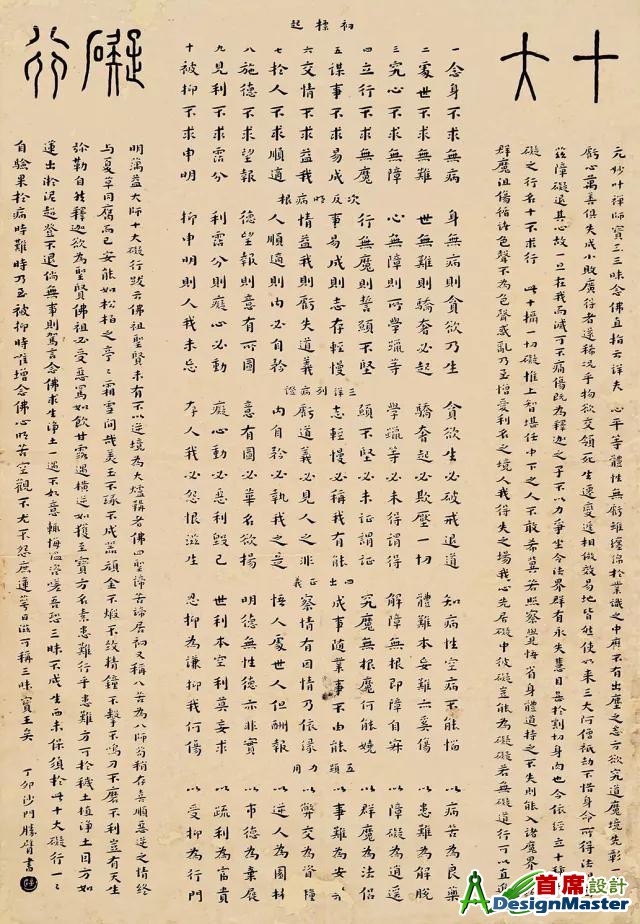 十大礙行
元妙叶禪師寶王三昧念佛直指云詳夫 心平等體性無虧雖纏綿於業識之中靡不有出塵之志方欲究道魔境先彰
虧心萬善俱失成小敗廣得者還稀況乎物欲交領死生遷變遞相倣效易地皆然使如來三大阿僧祇劫不惜身命所得法
茲障礙退其心故一旦在我而滅可不痛傷既為釋迦之子不以力爭坐令法界群有永失慧目甚於割切身肉也今依經立十種
礙之行名十不求行 此十攝一切礙惟上智堪任中下之人不敢希冀若照察覺悟省身體道持之不失則能入諸魔界
群魔沮傷循諸色聲不為色聲惑亂乃至憎愛利名之境人我得失之場我心先居礙中彼礙豈能為礙礙若無礙道行可以直進
初標起
一念身不求無病
二處世不求無難
三究心不求無障
四立行不求無魔
五謀事不求易成
六交情不求益我
七於人不求順適
八施德不求望報
九見利不求霑分
十被抑不求申明
次反明病根
身無病則貪欲乃生
世無難則驕奢必起
心無障則所學躐等
行無魔則誓願不堅
事易成則志存輕慢
情益我則虧失道義
人順適則內必自矜
德望報則意有所圖
利霑分則癡心必動
抑申明則人我未忘
三詳列病證
貪欲生必破戒退道
驕奢起必欺壓一切
學躐等必未得謂得
願不堅必未證謂證
志輕慢必稱我有能
虧道義必見人之非
內自矜必執我之是
意有圖必華名欲揚
癡心動必惡利毀己
存人我必怨恨滋生
四出正義
知病性空病不能惱
體難本妄難亦奚傷
解障無根即障自寂
究魔無根魔何能嬈
成事隨業事不由能
察情有因情乃依緣
悟人處世人但酬報
明德無性德亦非實
世利本空利莫妄求
忍抑為謙抑我何傷
五顯力用
以病苦為良藥
以患難為解脫
以障礙為逍遙
以群魔為法侶
以事難為安樂
以弊交為資糧
以逆人為園林
以市德為棄屣
以疏利為富貴
以受抑為行門
明蕅益大師十大礙行跋云佛祖聖賢未有不以逆境為大爐鞴者佛四聖諦苦諦居初又稱八苦為八師苟稍存喜順惡逆之情終
與夏草同腐而已安能如松柏之亭亭霜雪間哉美玉不琢不成器頑金不煅不致精鐘不擊不鳴刀不磨不利豈有天生
彌勒自然釋迦欲為聖賢佛祖必受惡罵如飲甘露遇橫逆如獲至寶方名素患難行乎患難方可於穢土植淨土因方如
蓮出淤泥超登不退倘無事則駕言念佛求生淨土一遇不如意輒悔溢嗟喜怒三昧不成生西未保須於此十大礙行一一
自驗果於病時難時乃至被抑時唯增念佛心明苦空觀不尤不怨庶蓮萼日滋可稱三昧寶王矣
丁卯沙門勝臂書
首席設計
DesignMaster